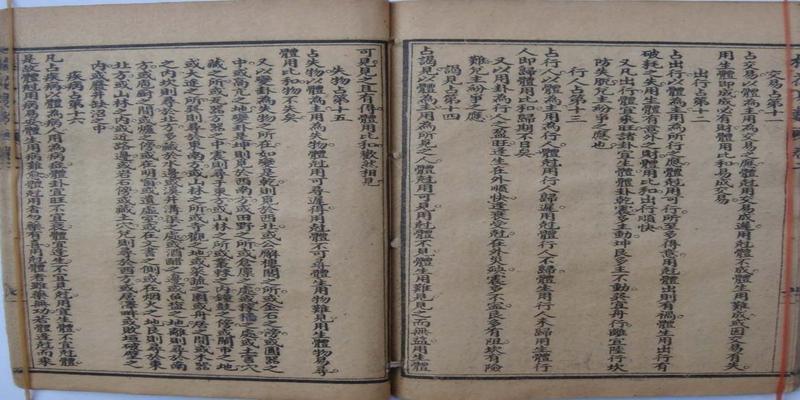 交易占第十一
占交易以體為主用為交易之應體尅用交易成遲用尅體不成體生用難成或因交易有失
用生體即成成必有財體用比和易成交易
出行占第十二
占出行以體為主用為所行之應體尅用可行所至多得意用尅體出則有禍體生用出行有
破耗之失用生體有意外之財體用比和出行順快
又凡出行體宜乘旺諸卦宜生體體卦乾震多主動坤艮多主不動巽宜舟行離宜陸行坎
防失脫兌主紛爭之應也
行人占第十三
占行人以體為主用為行人體尅用行人歸遲用尅體行人不歸體生用行人未歸用生體行
人即歸體用比和歸期不日矣
又以用卦為行人之盈旺逢生在外順快逢衰受尅在外災殃震多不寧艮多有阻坎有險
難兌主紛爭之應
謁見占第十四
占謁見以體為主用為所見之人體尅用可見用尅體不見體生用難見見之而無益用生體
可見見之且有得體用比和歡然相見
失物占第十五
占失物以體為主用為失物體尅用可尋遲得用尅體不可尋體生用物難見用生體物易尋
體用比和物不失矣
又以變卦為失物之所在如變是乾則覓於西北或公廨樓閣之所或金石之傍或圓器之
中或高亢之地變卦是坤則尋於西南方或田野之所或倉廩之處或稼穡之處或土窖穴
藏之所或瓦器方器之中震則尋于東方或山林之所或叢棘之內鐘鼓之傍或鬧市之地
或大途之所巽則尋於東南方或山林之所或寺觀之地或菜蔬之園或舟車之間或木器
之內坎則尋於北方多藏於水邊或渠井溝溪之處或酒醋之邊或魚鹽之地離則尋於南
方或庖廚之間或爐冶之傍或在明窗或遺虛室或在文書之側或在烟火之地艮則尋於東
北方或山林之內或近路邊或岩石傍或藏土穴兌則尋於西方或居澤畔或敗垣破壁之
內或廢井缺沼之中
疾病占第十六
凡占疾病以體為病人用為病症體卦宜旺不宜衰體宜逢生不宜見尅用宜生體不宜尅體
是故體尅用病易愈體生用病難愈體尅用者勿藥有喜用尅體者雖藥無功若體逢尅而乘